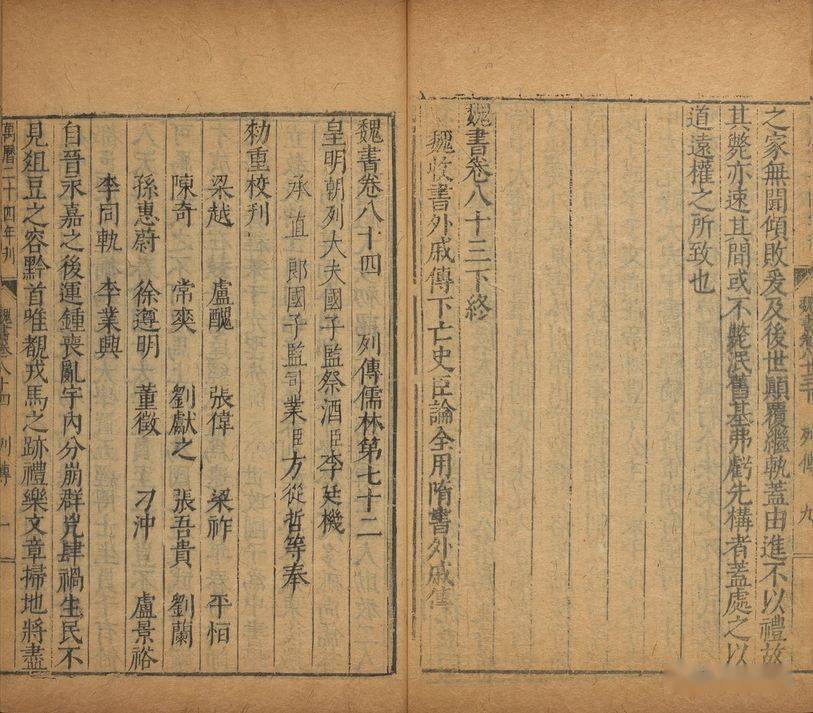 之家無聞傾敗爰及後世顛覆繼軌蓋由進不以禮故
其斃亦速其間或不斃泯舊基弗虧先構者蓋處之以
道遠權之所致也
魏書卷八十三下終
魏收書外戚傳下亡史臣論全用隋書外戚傳
魏書卷八十四 列傳儒林第七十二
皇明朝列大夫國子監祭酒臣李廷機
承直郎國子監司業臣方從哲等奉
勑重校刊
梁越 盧醜 張偉 梁祚 平恒
陳奇 常爽 劉獻之 張吾貴 劉蘭
孫惠蔚 徐遵明 董徵 刁沖 盧景裕
李同軌 李業興
自晉永嘉之後運鍾喪亂宇內分崩群兇肆禍生民不
見俎豆之容黔首唯覩戎馬之跡禮樂文章掃地將盡
萬曆二十四年刊 魏書卷八十四 列傳 一